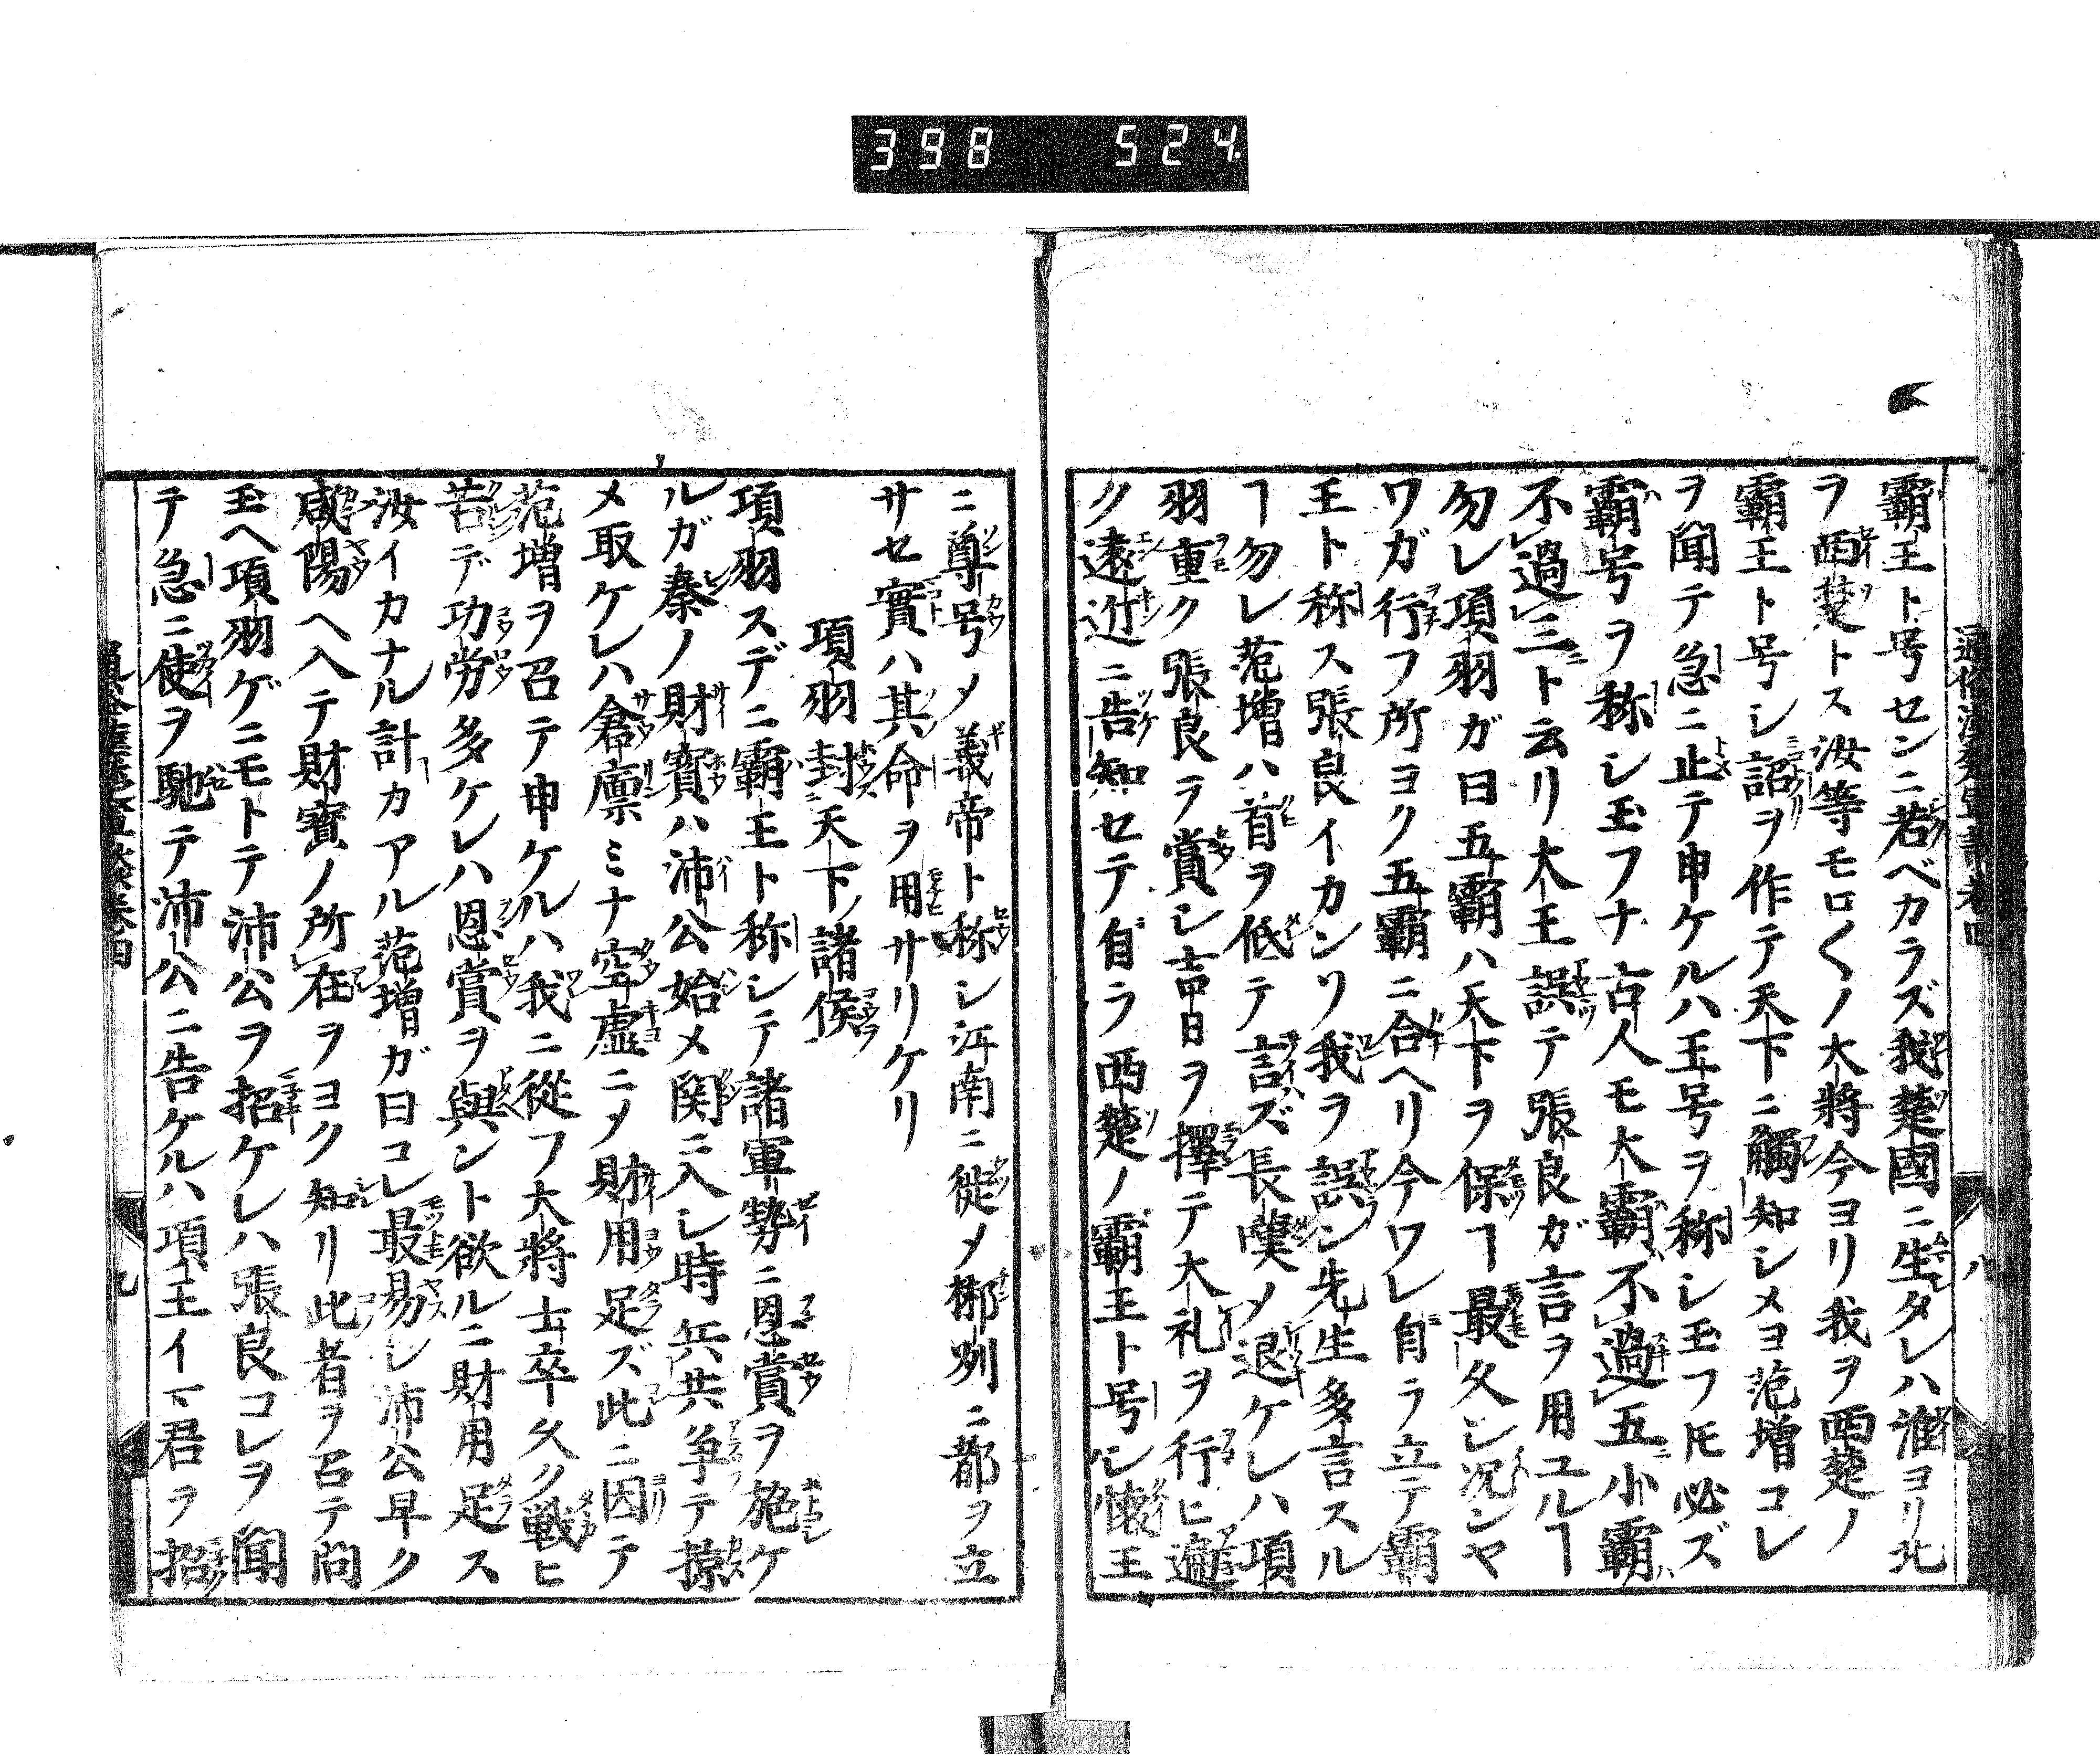 398 524.
霸王ト号センニ若ベカラズ我楚國ニ生タレハ淮ヨリ北
ヲ西楚トス汝等モロ〱ノ大將今ヨリ我ヲ西楚ノ
霸王ト号シ詔ヲ作テ天下ニ觸知シメヨ范增コレ
ヲ聞テ急ニ止テ申ケルハ王号ヲ称シ玉フ𪜈必ズ
霸号ヲ称シ玉フナ古人モ大霸不過五小霸
不過三ト云リ大王誤テ張良ガ言ヲ用ユルヿ
勿レ項羽ガ曰五霸ハ天下ヲ保ヿ最久シ况ンヤ
ワガ行フ所ヨク五霸ニ合ヘリ今ワレ自ラ立テ霸
王ト称ス張良イカンソ我ヲ誤ン先生多言スル
ヿ勿レ范增ハ首ヲ低テ言ズ長嘆メ退ケレハ項
羽重ク張良ヲ賞シ吉日ヲ擇テ大礼ヲ行ヒ遍
ク遠近ニ告知セテ自ラ西楚ノ霸王ト号シ懷王
ニ尊号メ義帝ト称シ江南ニ徙メ郴州ニ都ヲ立
サセ實ハ其命ヲ用サリケリ
項羽封天下諸侯
項羽スデニ霸王ト称シテ諸軍勢ニ恩賞ヲ施ケ
ルガ秦ノ財寳ハ沛公始メ関ニ入シ時兵共争テ掠
メ取ケレハ倉廪ミナ空虚ニメ財用足ズ此ニ因テ
范增ヲ召テ申ケルハ我ニ從フ大將士卒久ク戰ヒ
苦デ功労多ケレハ恩賞ヲ與ント欲ルニ財用足ス
汝イカナル計カアル范增ガ曰コレ最易シ沛公早ク
咸陽ヘ入テ財寳ノ所在ヲヨク知リ此者ヲ召テ問
玉ヘ項羽ゲニモトテ沛公ヲ招ケレハ張良コレヲ聞
テ急ニ使ヲ馳テ沛公ニ告ケルハ項王イマ君ヲ招
八
九